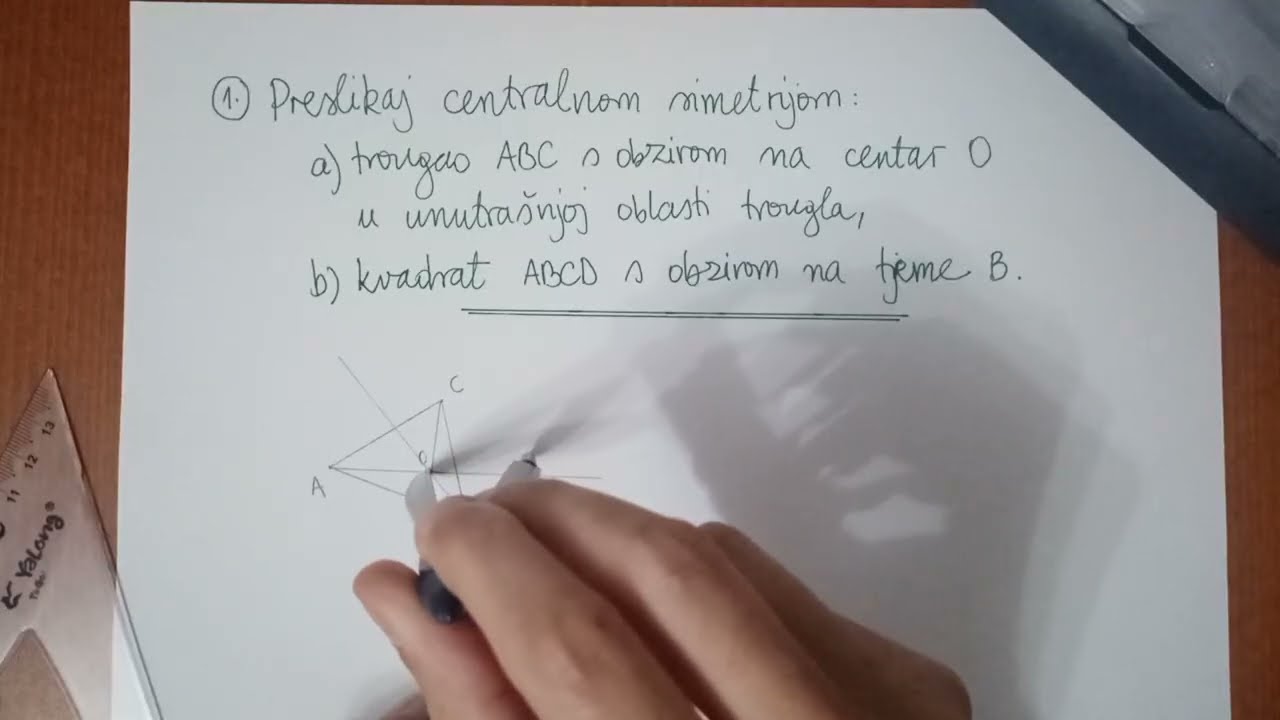 1. Preslikaj centralnom simetrijom:
a) trougao ABC s obzirom na centar O
u unutrašnjoj oblasti trougla,
b) kvadrat ABCD s obzirom na tjeme B.
C
A
13
12
11
Yalong®